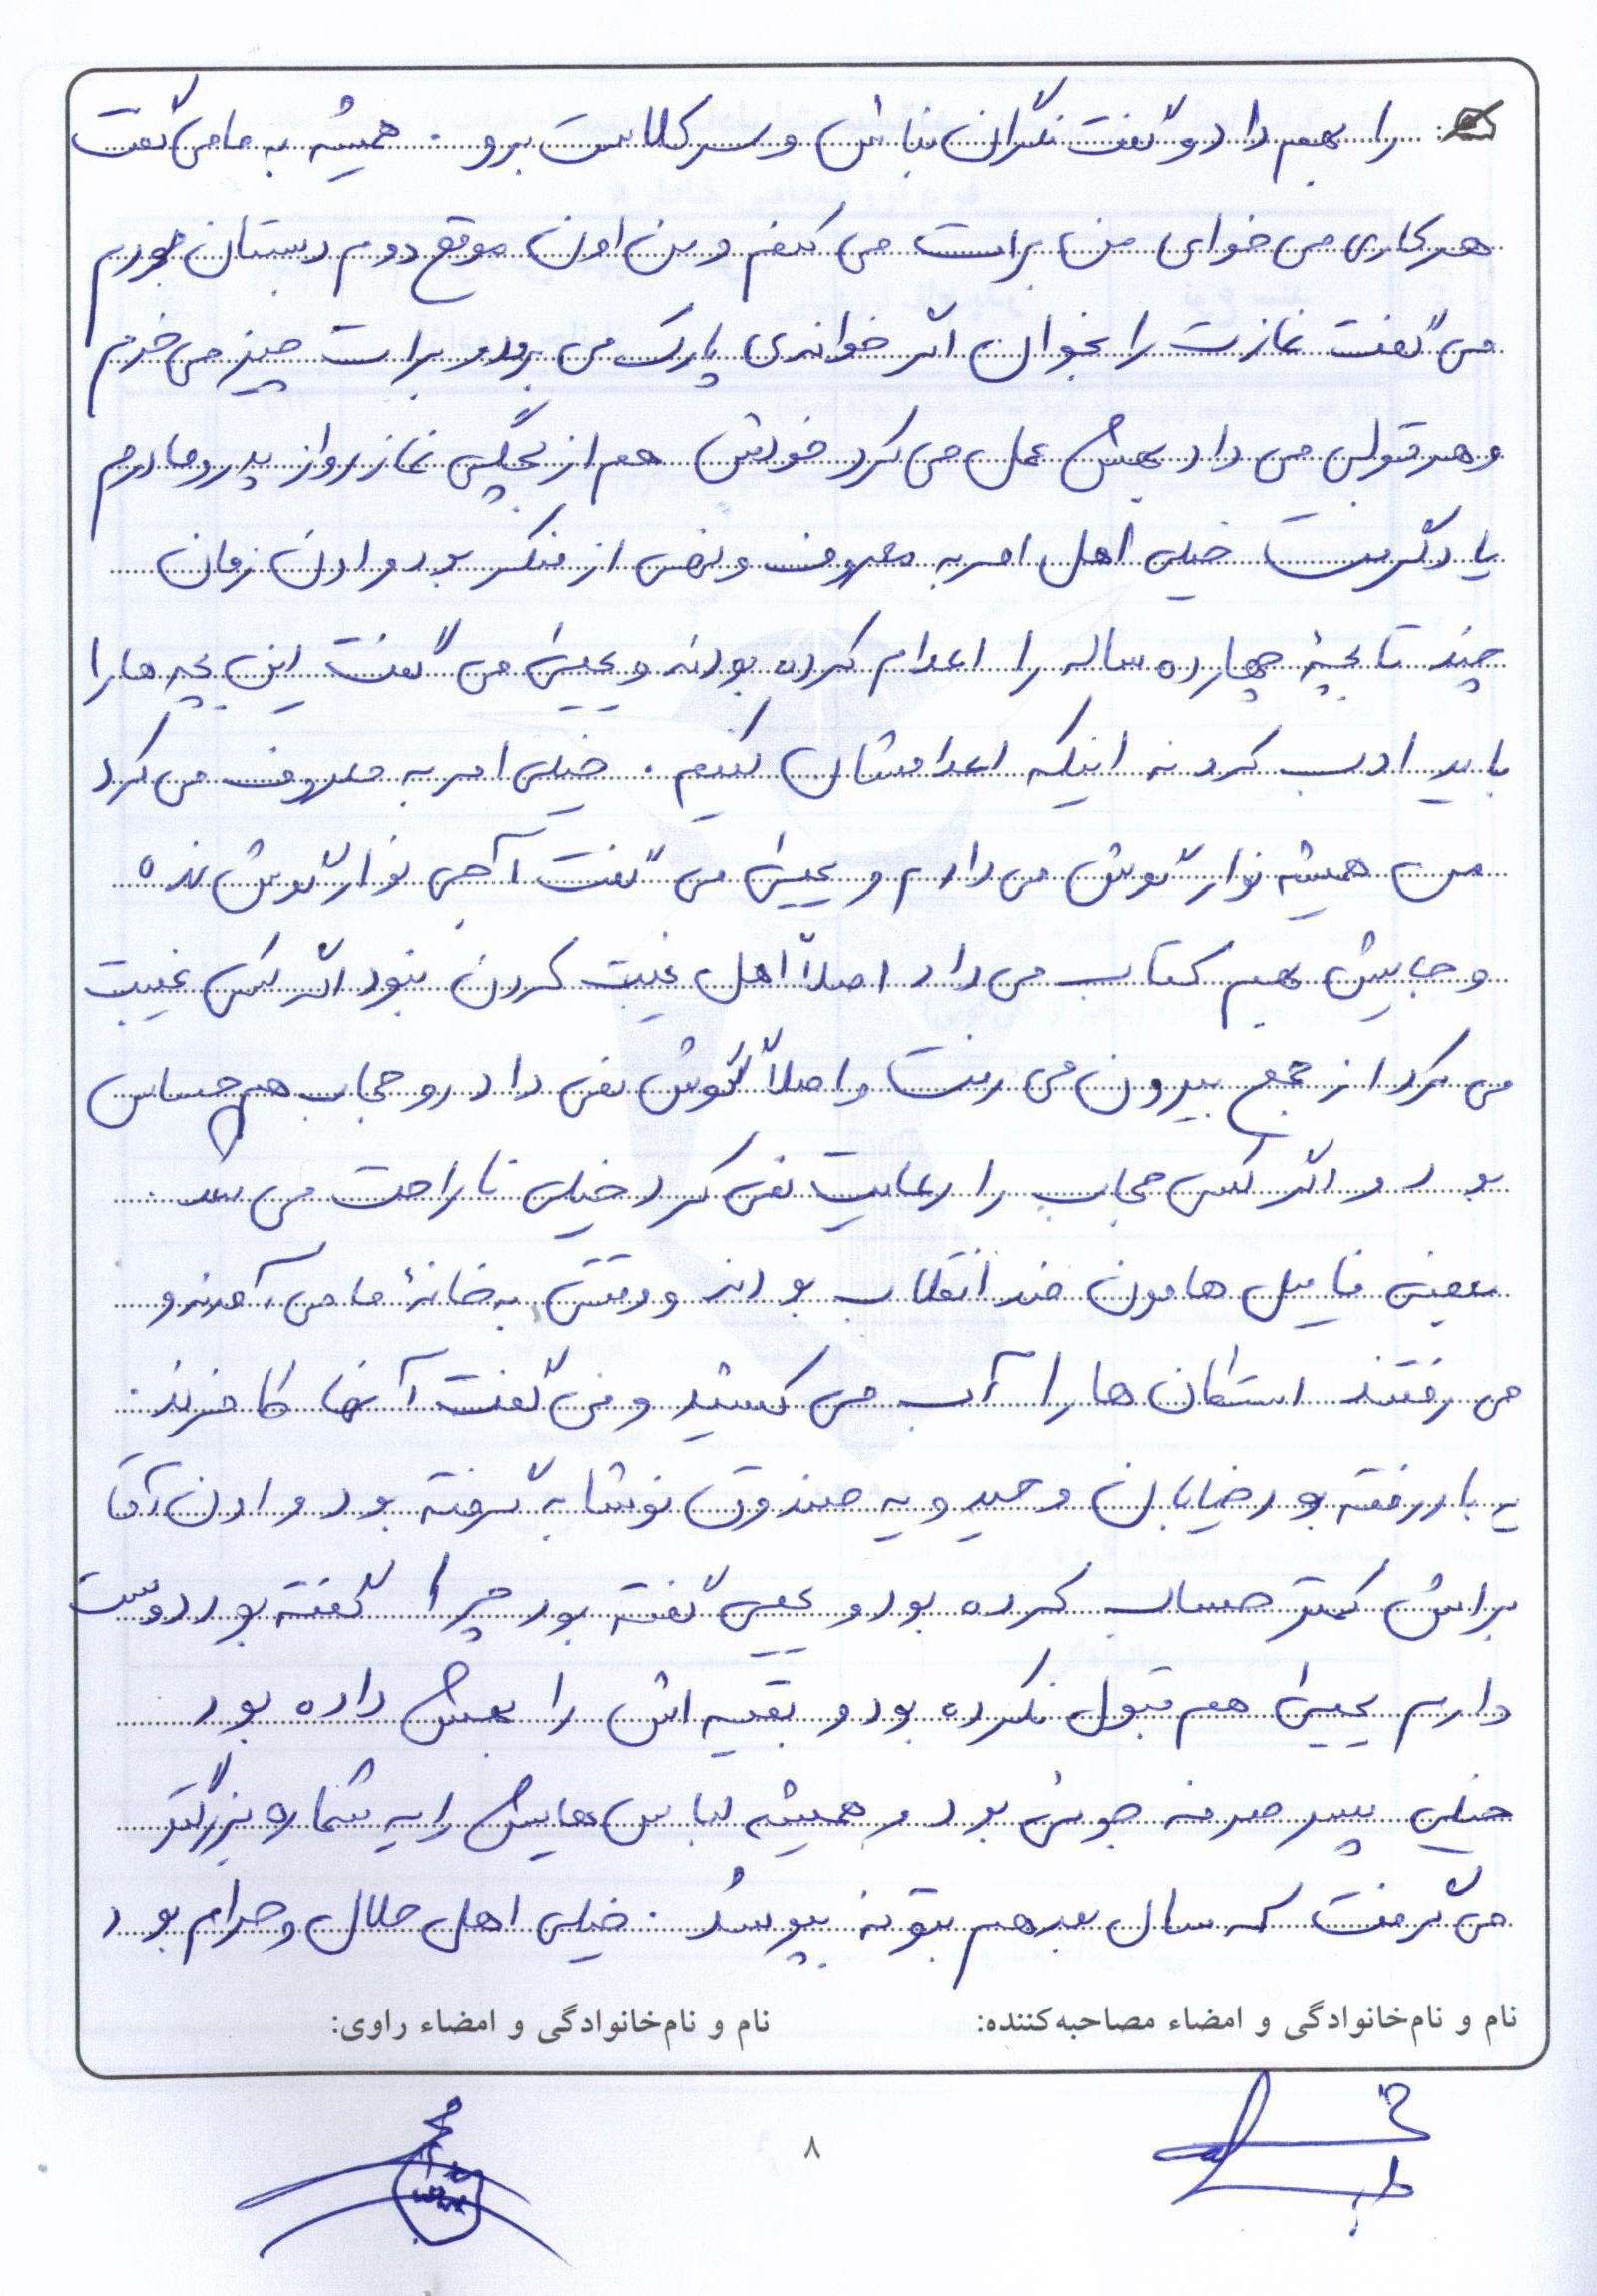 را بهم داد و گفت نگران نباش و سر کلاست برو . همیشه به ما می گفت
هر کاری می خوای من برات می کنم و من اون موقع دوم دبستان بودم
می گفت نمازت را بخوان اگر خواندی پارک می برم و برات چیز می خرم
و هر قولی می داد بهش عمل می کرد خودش هم از بچگی نماز رو از پدر و مادرم
یاد گرفت خیلی اهل امر به معروف و نهی از منکر بود و اون زمان
چند تا بچهٔ چهارده ساله را اعدام کرده بودند و یحیی می گفت این بچه ها را
باید ادب کرد نه اینکه اعدامشان کنیم . خیلی امر به معروف می کرد
من همیشه نوار گوش می دادم و یحیی می گفت آجی نوار گوش نده
و جایش بهم کتاب می داد اصلاً اهل غیبت کردن نبود اگر کسی غیبت
می کرد از جمع بیرون می رفت و اصلاً گوش نمی داد رو حجاب هم حساس
بود و اگر کسی حجاب را رعایت نمی کرد خیلی ناراحت می شد .
بعضی فامیل هامون ضد انقلاب بودند و وقتی به خانهٔ ما می آمدند و
می رفتند استکان ها را آب می کشید و می گفت آنها کافرند .
یه بار رفته بود خیابان وحید و یه صندوق نوشابه گرفته بود و اون آقا
براش کمتر حساب کرده بود و یحیی گفته بود چرا گفته بود دوست
دارم یحیی هم قبول نکرده بود و بقیه اش را بهش داده بود
خیلی پسر صرفه جویی بود و همیشه لباس هایش را یه شماره بزرگتر
می گرفت که سال بعد هم بتونه بپوشد . خیلی اهل حلال و حرام بود
نام و نام‌خانوادگی و امضاء مصاحبه‌کننده: نام و نام‌خانوادگی و امضاء راوی:
۸